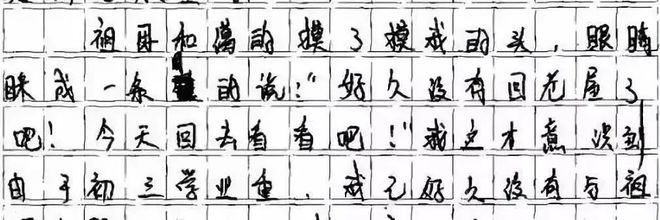 祖母和蔼的摸了摸我的头，眼睛
眯成一条 的说：“好久没有回老屋了
吧！今天回去看看吧！”我这才意识到
由于初三学业重，我已好久没有与祖